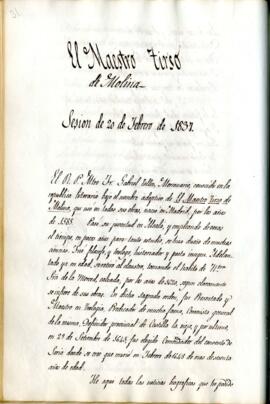 31
El Maestro Tirso
de Molina
Sesion de 20 de Febrero de 1837.
El R. P. Mtro Fr. Gabriel Tellez, Mercenario, conocido en la
republica literaria bajo el nombre adoptivo de El Maestro Tirso de
Molina, que usó en todas sus obras, nació en Madrid, por los años
de 1585. Pasó su juventud en Alcala, y empleando de veras
el tiempo, en pocos años para tanto estudio, se hizo dueño de muchas
ciencias. Fué filosofo y teologo, historiador y poeta insigne. Adelan-
tado ya en edad, se retiró al claustro, tomando el habito de Ntra
Sra de la Merced, calzada, por los años de 1620, segun claramente
se infiere de sus obras. En dicha sagrada orden, fue Presentado y
Maestro en Teologia, Predicador de mucha fama, Cronista general
de la misma, Definidor provincial de Castilla la vieja, y por ultimo,
en 29 de Setiembre de 1645, fue elegido Comendador del convento de
Soria donde se cree que murió en Febrero de 1648 de mas de sesenta
años de edad.
He aqui todas las noticias biograficas que he podido